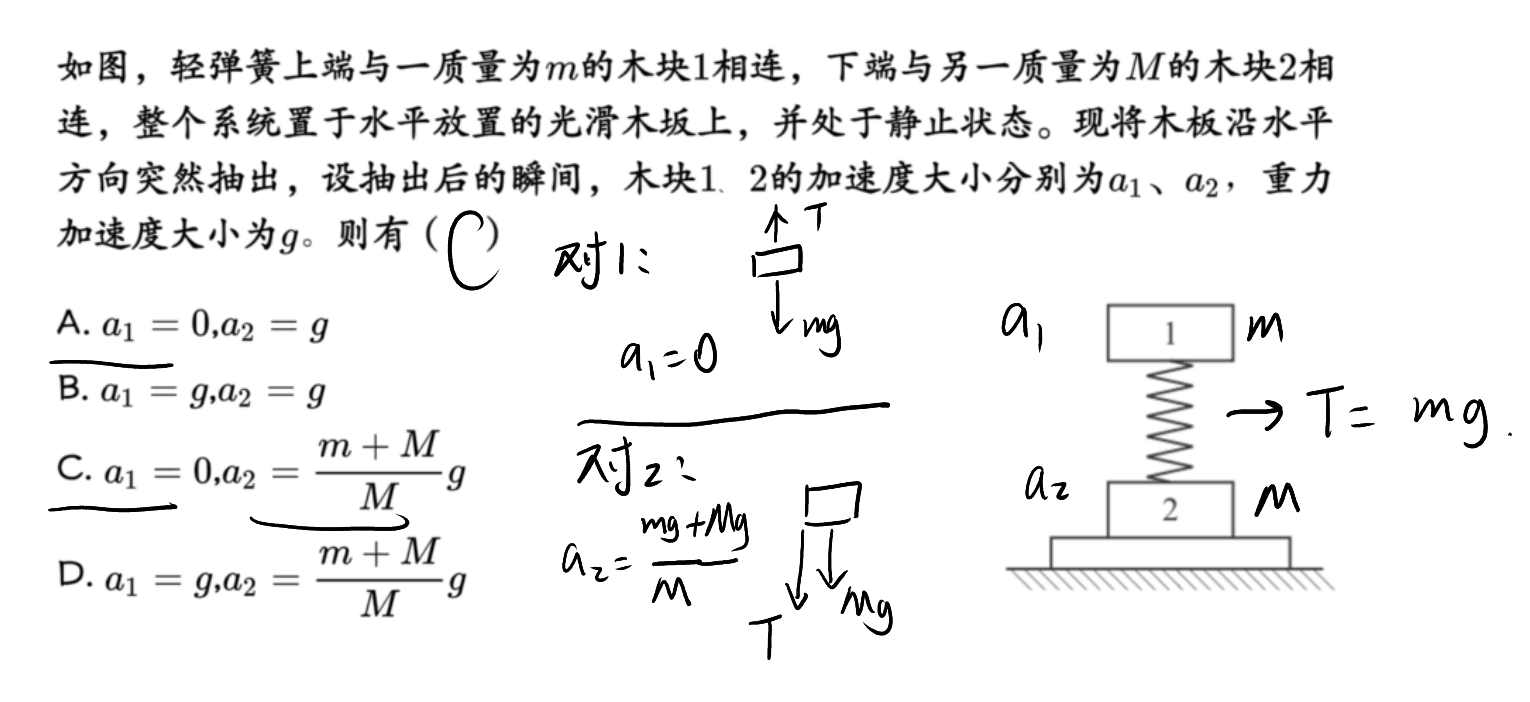 如图，轻弹簧上端与一质量为m的木块1相连，下端与另一质量为M的木块2相
连，整个系统置于水平放置的光滑木坂上，并处于静止状态。现将木板沿水平
方向突然抽出，设抽出后的瞬间，木块1、2的加速度大小分别为a₁、a₂，重力
加速度大小为g。则有（C）
A. a₁ = 0,a₂ = g
B. a₁ = g,a₂ = g
C. a₁ = 0,a₂ = \frac{m + M}{M} g
D. a₁ = g,a₂ = \frac{m + M}{M} g
对1:
T
mg
a₁=0
对2:
a₂= \frac{mg+Mg}{M}
T
Mg
a₁ 1 m
→ T= mg.
a₂ 2 M